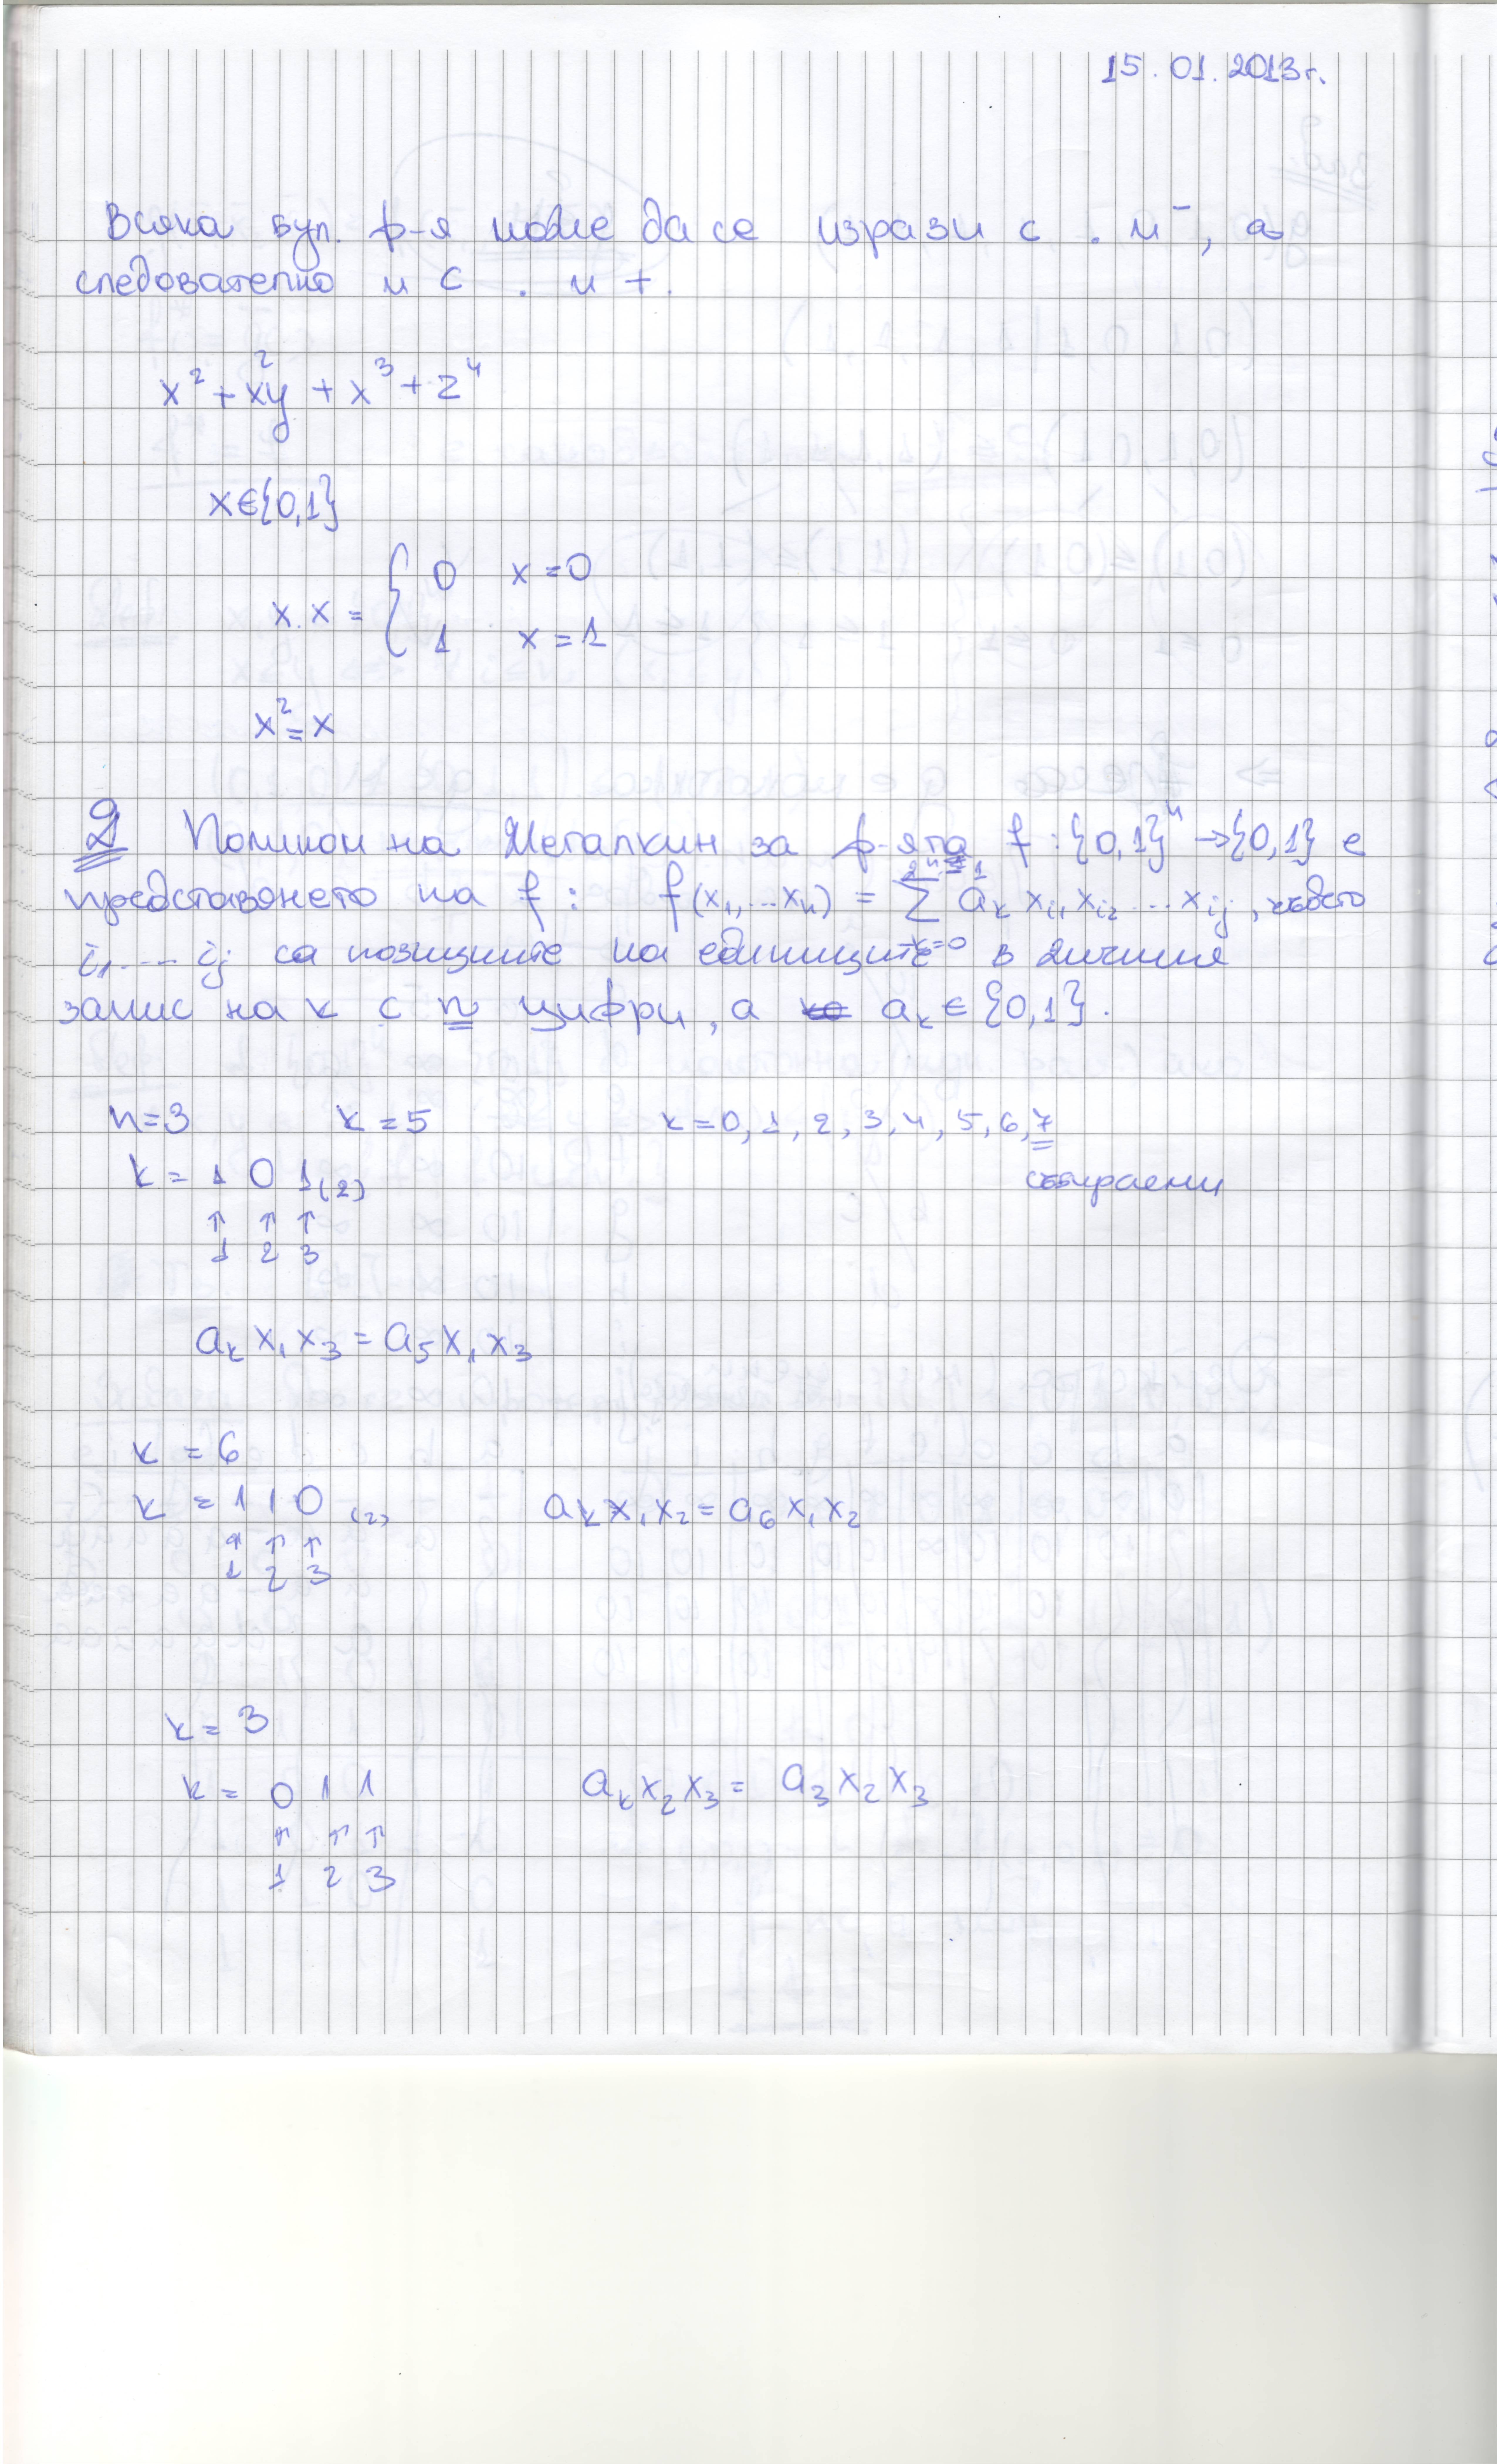 15.01.2013г.
Всяка бул. ф-я може да се изрази с . и ‾, а
следователно и с . и +.
x² + x²y + x³ + z⁴
x∈{0,1}
x.x = { 0 x=0
1 x=1
x² = x
Полином на Жегалкин за ф-ята f:{0,1}ⁿ→{0,1} е
представянето на f: f(x₁,...xₙ) = ∑_{k=0}^{2ⁿ-1} aₖ xᵢ₁ xᵢ₂ ... xᵢⱼ, където
i₁,... iⱼ са позициите на единиците в двоичния
запис на k с n цифри, а aₖ∈{0,1}.
n=3 k=5 k=0,1,2,3,4,5,6,7
k = 1 0 1₍₂₎ събираеми
↑ ↑ ↑
1 2 3
aₖx₁x₃ = a₅x₁x₃
k = 6
k = 1 1 0 ₍₂₎ aₖx₁x₂ = a₆x₁x₂
↑ ↑ ↑
1 2 3
k = 3
k = 0 1 1 aₖx₂x₃ = a₃x₂x₃
↑ ↑ ↑
1 2 3